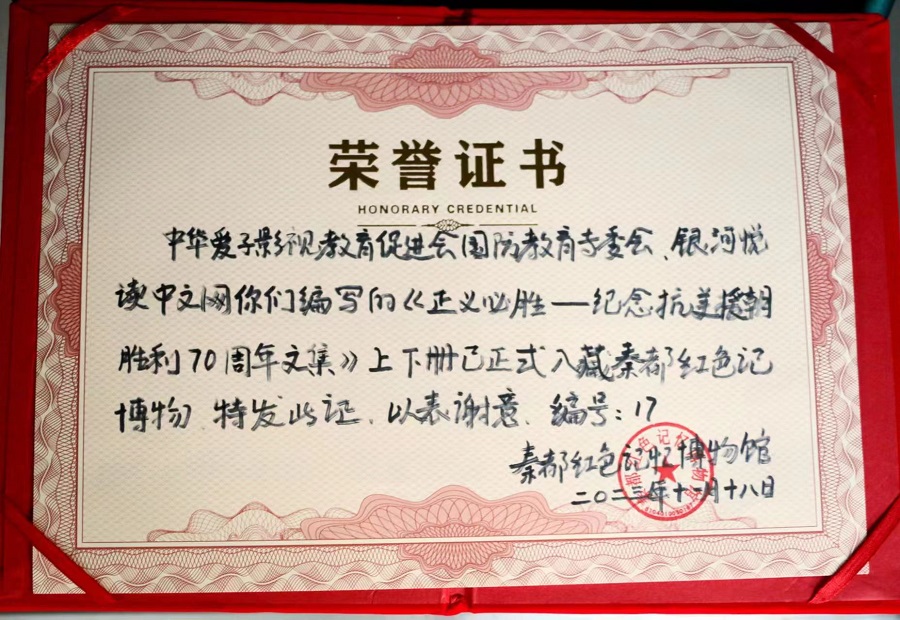 荣誉证书
HONORARY CREDENTIAL
中华爱子影视教育促进会国防教育专委会、银河悦
读中文网你们编写的《正义必胜——纪念抗美援朝
胜利70周年文集》上下册已正式入藏秦都红色记
博物、特发此证、以表谢意、编号:17
秦都红色记忆博物馆
二〇二三年十二月十八日